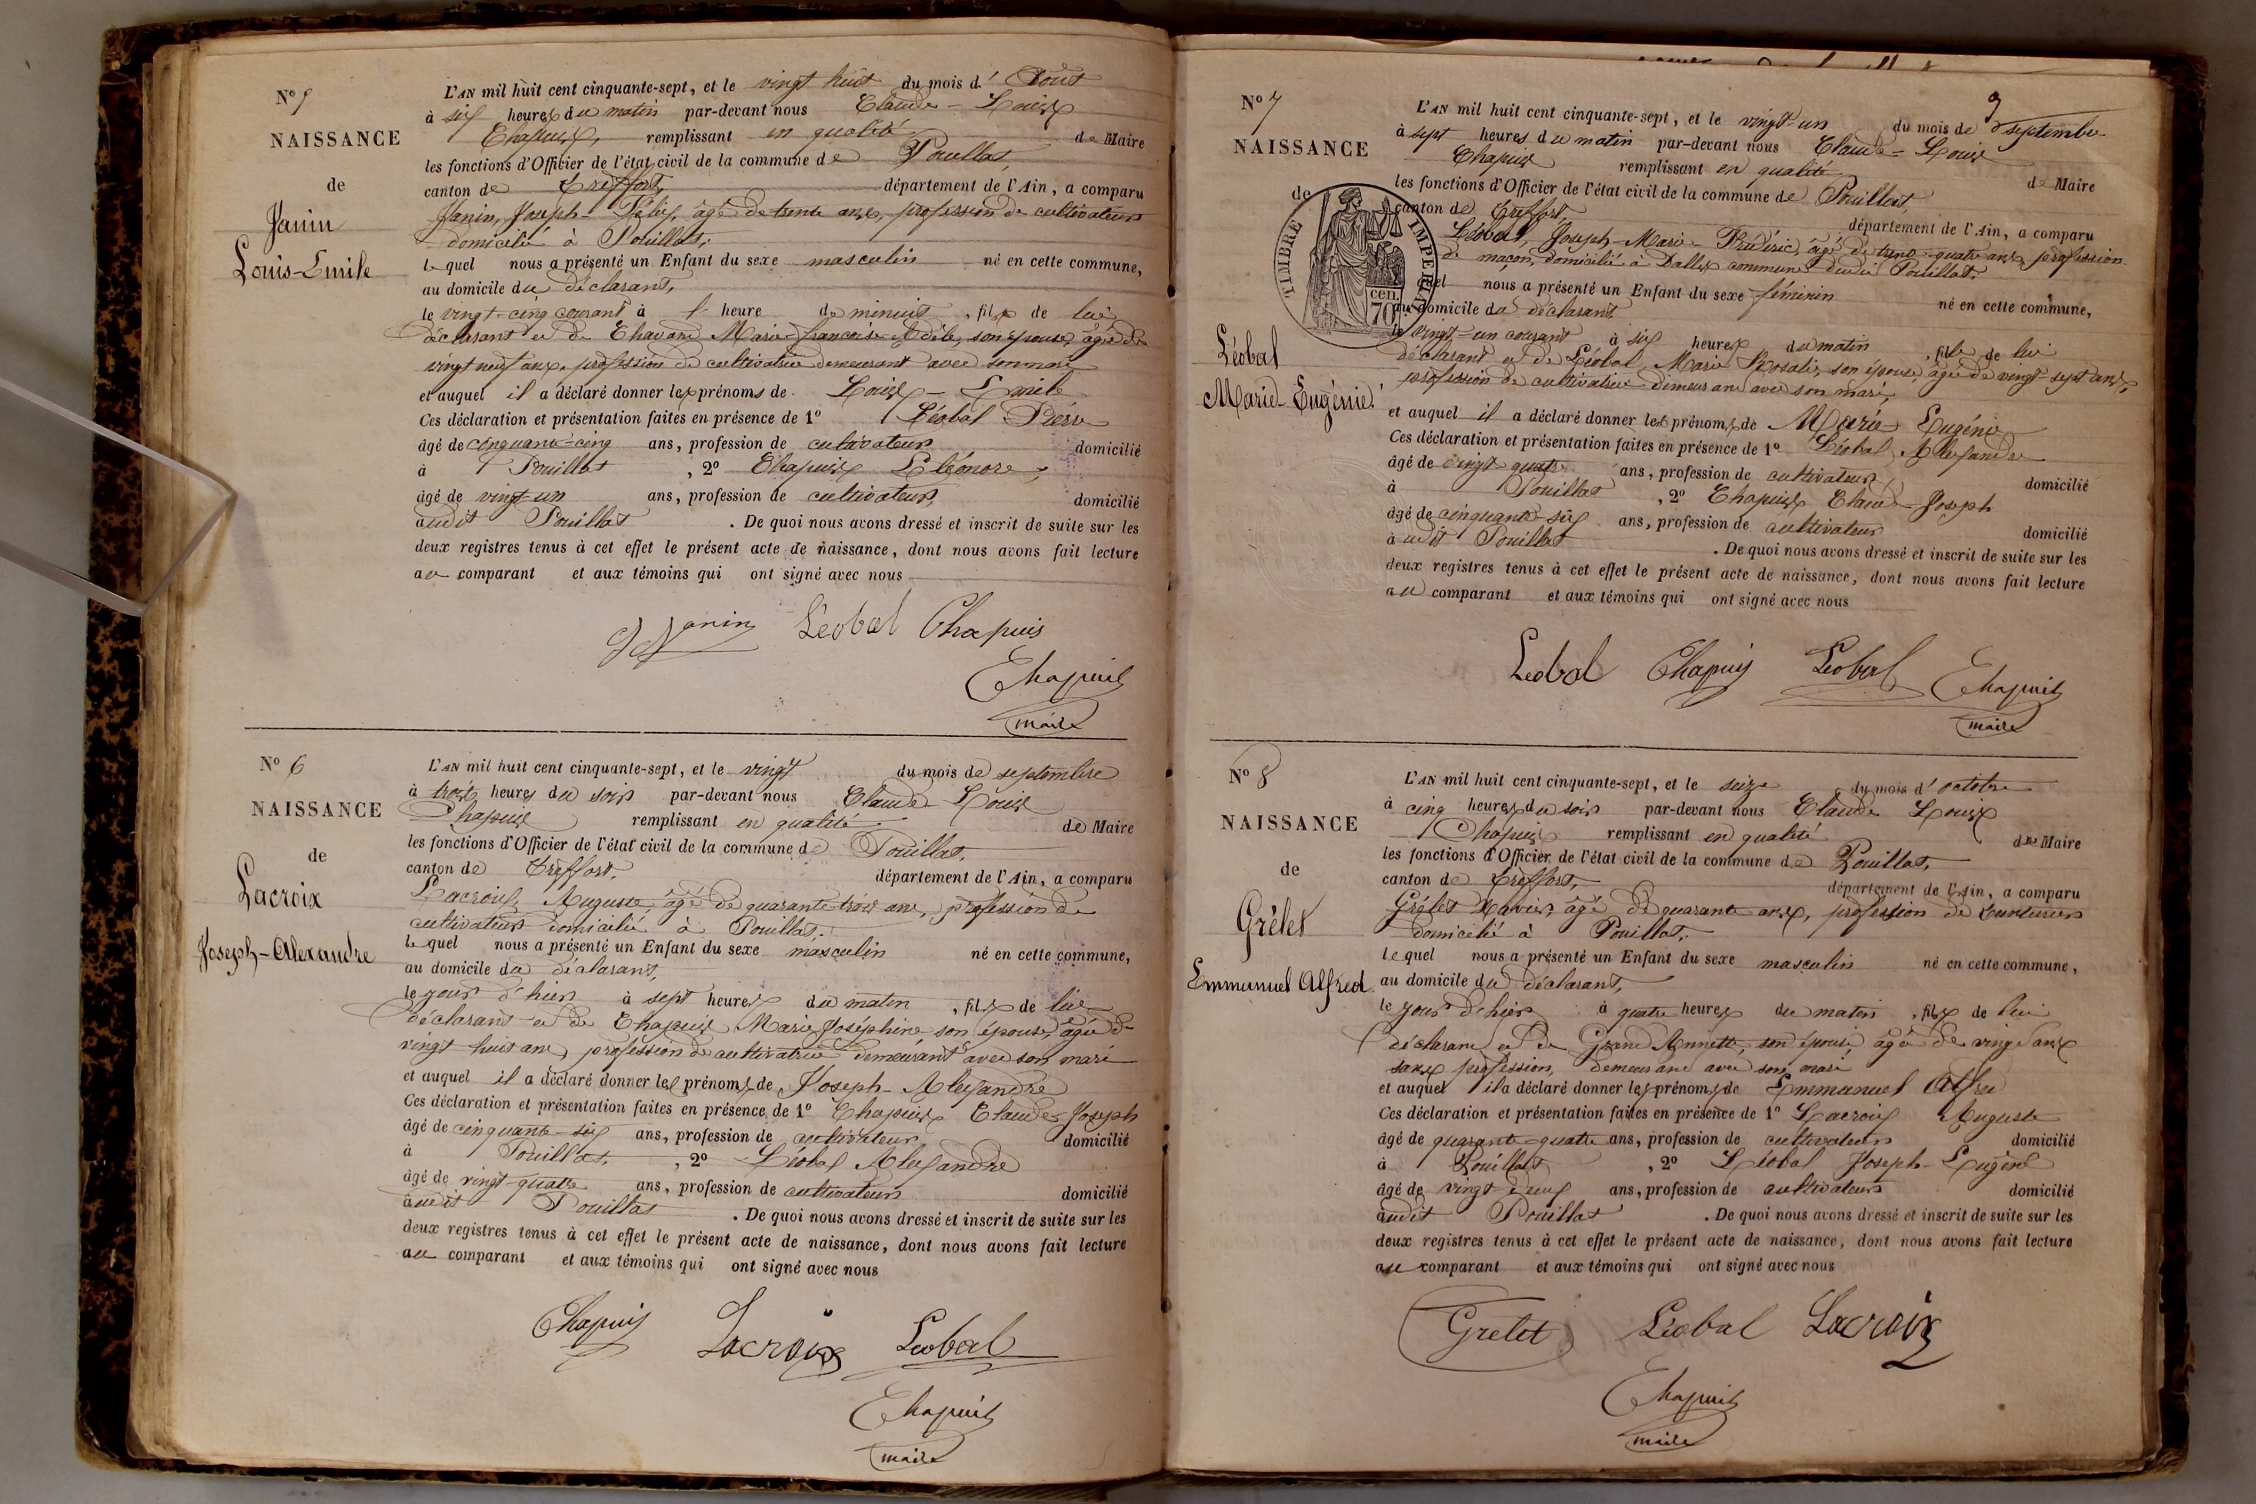 N° 5
NAISSANCE
de
Janin
Louis-Emile
L'AN mil huit cent cinquante-sept, et le vingt huit du mois d' Août
à six heures du matin par-devant nous Claude-Louis
Chapuis, remplissant en qualité de Maire
les fonctions d'Officier de l'état civil de la commune de Pouillat,
canton de Treffort, département de l'Ain, a comparu
Janin, Joseph-Félix, âgé de trente ans, profession de cultivateur
domicilié à Pouillat,
lequel nous a présenté un Enfant du sexe masculin né en cette commune,
au domicile du déclarant,
le vingt-cinq courant à l' heure de minuit, fils de lui
déclarant et de Chavant Marie françoise Adèle, son épouse, âgée de
vingt neuf ans, profession de cultivatrice demeurant avec son mari
et auquel il a déclaré donner les prénoms de Louis-Emile
Ces déclaration et présentation faites en présence de 1° Léobal Pierre
âgé de cinquante-cinq ans, profession de cultivateur domicilié
à Pouillat, 2° Chapuis Eléonore,
âgé de vingt-un ans, profession de cultivateur, domicilié
audit Pouillat. De quoi nous avons dressé et inscrit de suite sur les
deux registres tenus à cet effet le présent acte de naissance, dont nous avons fait lecture
au comparant et aux témoins qui ont signé avec nous
Janin Léobal Chapuis
Chapuis
maire
N° 6
NAISSANCE
de
Lacroix
Joseph-Alexandre
L'AN mil huit cent cinquante-sept, et le vingt du mois de septembre
à trois heures du soir par-devant nous Claude-Louis
Chapuis remplissant en qualité de Maire
les fonctions d'Officier de l'état civil de la commune de Pouillat,
canton de Treffort, département de l'Ain, a comparu
Lacroix, Auguste, âgé de quarante-trois ans, profession de
cultivateur domicilié à Pouillat,
lequel nous a présenté un Enfant du sexe masculin né en cette commune,
au domicile du déclarant,
le jour d'hier à sept heures du matin, fils de lui
déclarant et de Chapuis Marie Joséphine son épouse, âgée de
vingt huit ans, profession de cultivatrice demeurant avec son mari
et auquel il a déclaré donner les prénoms de Joseph-Alexandre
Ces déclaration et présentation faites en présence de 1° Chapuis Claude-Joseph
âgé de cinquante-six ans, profession de cultivateur domicilié
à Pouillat, 2° Léobal Alexandre
âgé de vingt-quatre ans, profession de cultivateur domicilié
audit Pouillat. De quoi nous avons dressé et inscrit de suite sur les
deux registres tenus à cet effet le présent acte de naissance, dont nous avons fait lecture
au comparant et aux témoins qui ont signé avec nous
Chapuis Lacroix Léobal
Chapuis
maire
9
N° 7
NAISSANCE
de
TIMBRE IMPERIAL
70 cen.
Léobal
Marie-Eugénie
L'AN mil huit cent cinquante-sept, et le vingt-un du mois de septembre
à sept heures du matin par-devant nous Claude-Louis
Chapuis remplissant en qualité de Maire
les fonctions d'Officier de l'état civil de la commune de Pouillat,
canton de Treffort, département de l'Ain, a comparu
Léobal, Joseph-Marie-Frédéric, âgé de trente-quatre ans, profession
de maçon, domicilié à Dalles commune dudit Pouillat
lequel nous a présenté un Enfant du sexe féminin né en cette commune,
au domicile du déclarant
le vingt-un courant à six heures du matin, fille de lui
déclarant et de Léobal Marie Rosalie, son épouse, âgée de vingt-sept ans,
profession de cultivatrice demeurant avec son mari,
et auquel il a déclaré donner les prénoms de Marie Eugénie
Ces déclaration et présentation faites en présence de 1° Léobal Alexandre
âgé de vingt quatre ans, profession de cultivateur, domicilié
à Pouillat, 2° Chapuis Claude-Joseph
âgé de cinquante-six ans, profession de cultivateur domicilié
audit Pouillat. De quoi nous avons dressé et inscrit de suite sur les
deux registres tenus à cet effet le présent acte de naissance, dont nous avons fait lecture
au comparant et aux témoins qui ont signé avec nous
Léobal Chapuis Léobal Chapuis
maire
N° 8
NAISSANCE
de
Grélet
Emmanuel Alfred
L'AN mil huit cent cinquante-sept, et le seize du mois d'octobre
à cinq heures du soir par-devant nous Claude Louis
Chapuis remplissant en qualité de Maire
les fonctions d'Officier de l'état civil de la commune de Pouillat,
canton de Treffort, département de l'Ain, a comparu
Grélet Xavier, âgé de quarante ans, profession de
domicilié à Pouillat,
lequel nous a présenté un Enfant du sexe masculin né en cette commune,
au domicile du déclarant,
le jour d'hier à quatre heures du matin, fils de lui
déclarant et de Grand Annette, son épouse, âgée de vingt ans
sans profession, demeurant avec son mari
et auquel il a déclaré donner les prénoms de Emmanuel Alfred
Ces déclaration et présentation faites en présence de 1° Lacroix Auguste
âgé de quarante-quatre ans, profession de cultivateur domicilié
à Pouillat, 2° Léobal Joseph-Eugène
âgé de vingt-deux ans, profession de cultivateur domicilié
audit Pouillat. De quoi nous avons dressé et inscrit de suite sur les
deux registres tenus à cet effet le présent acte de naissance, dont nous avons fait lecture
au comparant et aux témoins qui ont signé avec nous
Grelet Léobal Lacroix
Chapuis
maire